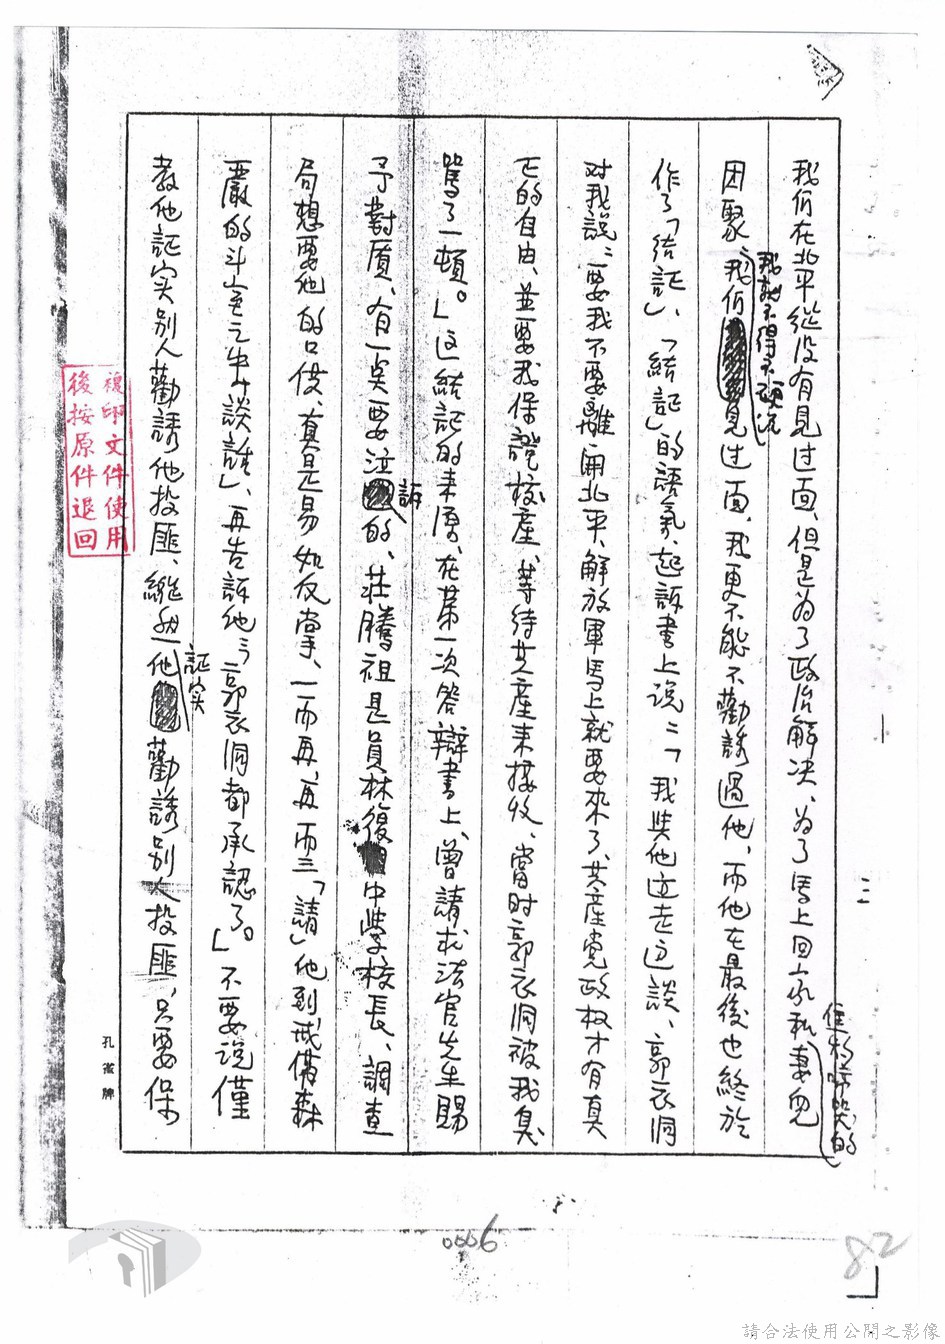 我们在北平從没有見过面,但是为了政治解决、为了馬上回家和妻兒
団聚,我们見过面,我更不能不勸誘過他,而他在最後也終於
我就不得不硬说
作了「结証」、「結証」的語氣,起訴書上说:「我與他边走边談、郭衣洞
对我説:要我不要離開北平,解放軍馬上就要來了,共產党政权才有真
正的自由、並要我保證校產、等待共產來接收、當时郭衣洞被我臭
罵了一頓。」这結証的來源、在第一次答辯書上、曾請求法官先生賜
予對質、有一点要泣訴的、莊騰祖是員林復中學校長、調查
局想要他的口供、真是易如反掌、一而再、再而三「請」他到戒備森
嚴的斗室之中「談話」、再告訴他:「郭衣洞都承認了。」不要说僅
教他証实别人勸誘他投匪、縱然他証实勸誘别人投匪、只要保
孔雀牌
複印文件使用
後按原件退回
0006
82
請合法使用公開之影像